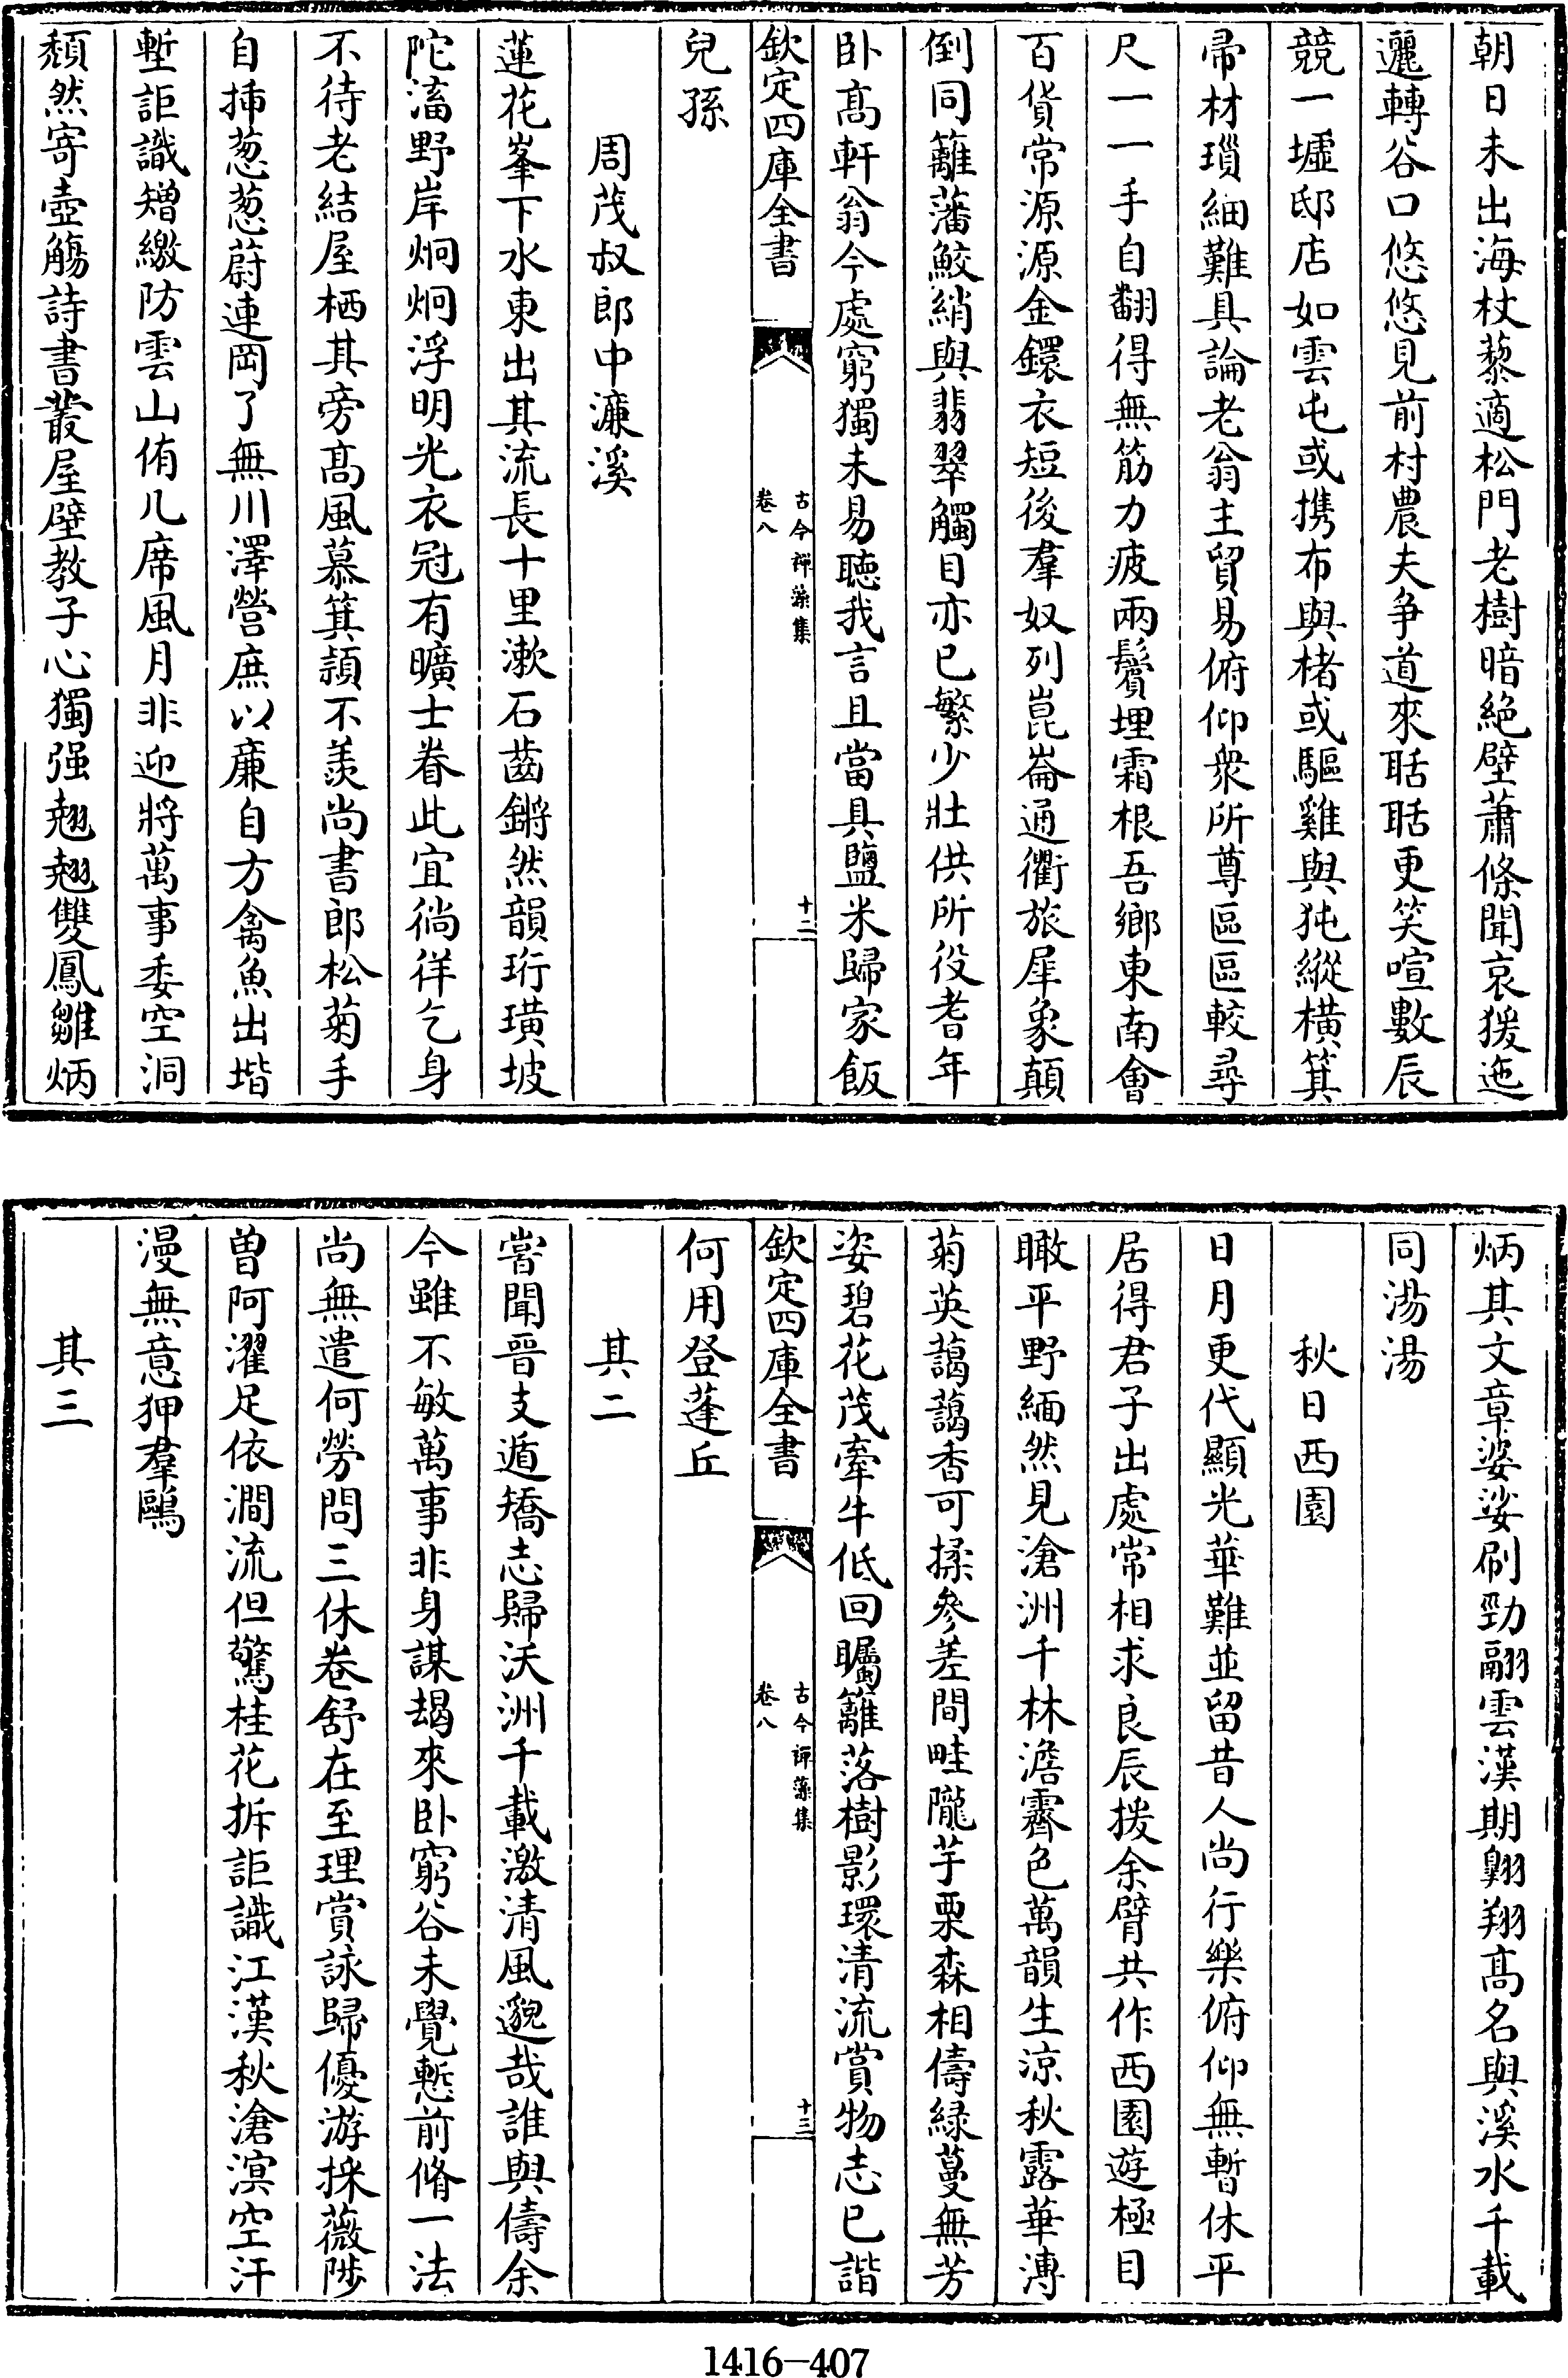 朝日未出海杖藜適松門老樹暗絶壁蕭條聞哀猨迤
邐轉谷口悠悠見前村農夫争道來聒聒更笑喧數辰
競一墟邸店如雲屯或携布與楮或驅雞與㹠縱横箕
帚材瑣細難具論老翁主貿易俯仰衆所尊區區較尋
尺一一手自翻得無筋力疲兩鬢埋霜根吾鄉東南會
百貨常源源金鐶衣短後羣奴列崑崙通衢旅犀象顛
倒同籬藩鮫綃與翡翠觸目亦已繁少壯供所役耆年
卧髙軒翁今處窮獨未易聽我言且當具鹽米歸家飯
欽定四庫全書
古今禪藻集
卷八
十二
兒孫
周茂叔郎中濂溪
蓮花峯下水東出其流長十里漱石齒鏘然韻珩璜坡
陀濇野岸炯炯浮明光衣冠有曠士眷此宜徜徉乞身
不待老結屋栖其旁髙風慕箕頴不羨尚書郎松菊手
自揷葱葱蔚連岡了無川澤營庶以亷自方禽魚出堦
塹詎識矰繳防雲山侑几席風月非迎將萬事委空洞
頽然寄壺觴詩書叢屋壁教子心獨强翹翹雙鳳雛炳
炳其文章婆娑刷勁翮雲漢期翺翔髙名與溪水千載
同湯湯
秋日西園
日月更代顯光華難並留昔人尚行樂俯仰無暫休平
居得君子出處常相求良辰援余臂共作西園遊極目
瞰平野緬然見滄洲千林澹霽色萬韻生凉秋露華漙
菊英藹藹香可揉參差間畦隴芋栗森相儔緑蔓無芳
姿碧花茂牽牛低回矚籬落樹影環清流賞物志已諧
欽定四庫全書
古今禪藻集
卷八
十三
何用登蓬丘
其二
嘗聞晉支遁矯志歸沃洲千載激清風邈哉誰與儔余
今雖不敏萬事非身謀朅來卧窮谷未覺慙前脩一法
尚無遣何勞問三休卷舒在至理賞詠歸優游採薇陟
曽阿濯足依澗流但驚桂花拆詎識江漢秋滄溟空汗
漫無意狎羣鷗
其三
1416-407